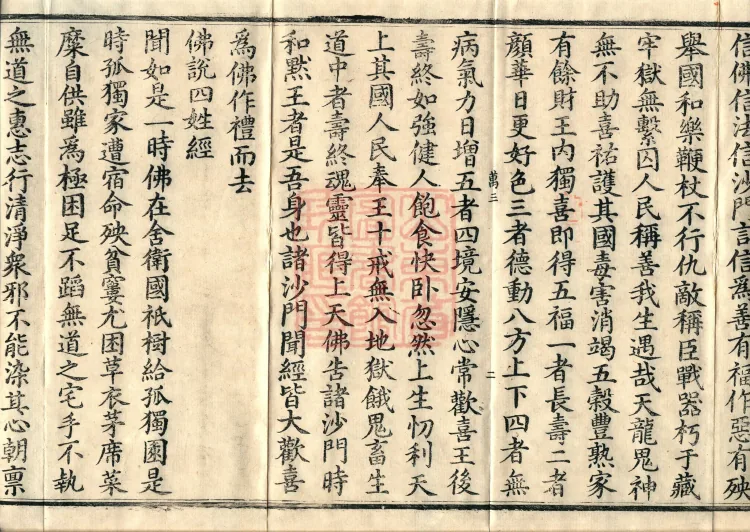 信佛信法信沙門言信爲善有福作惡有殃
舉國和樂鞭杖不行仇敵稱臣戰器朽于藏
牢獄無繫囚人民稱善我生遇哉天龍鬼神
無不助喜祐護其國毒害消竭五穀豐熟家
有餘財王内獨喜即得五福一者長壽二者
顔華日更好色三者德動八方上下四者無
病氣力日增五者四境安隱心常歡喜王後
萬三
二
壽終如強健人飽食快卧忽然上生忉利天
上其國人民奉王十戒無入地獄餓鬼畜生
道中者壽終魂靈皆得上天佛告諸沙門時
和默王者是吾身也諸沙門聞經皆大歡喜
爲佛作禮而去
佛說四姓經
聞如是一時佛在舍衛國祇樹給孤獨園是
時孤獨家遭宿命殃貧窶尤困草衣茅席菜
糜自供雖爲極困足不蹈無道之宅手不執
無道之惠志行清淨衆邪不能染其心朝禀